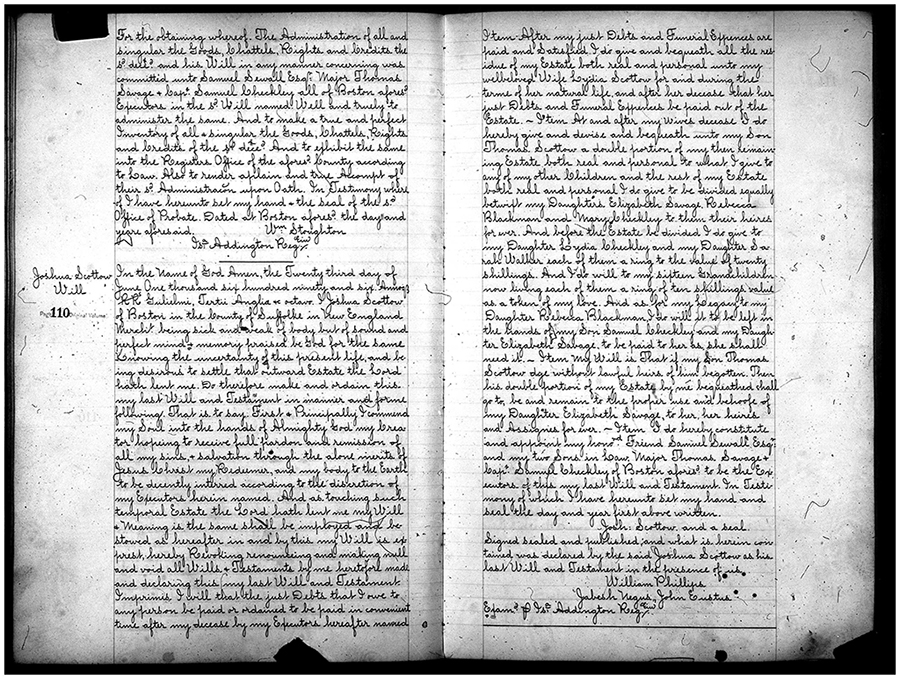 For the obtaining whereof. The Administration of all and
singular the Goods, Chattels, Rights and Credits the
sᵈ decᵈ and his Will in any manner concerning was
committed unto Samuel Sewall Esqʳ Major Thomas
Savage & Capᵗ Samuel Checkley all of Boston aforesᵈ
Executors in the sᵈ Will named Well and truely to
administer the same. And to make a true and perfect
Inventory of all & singular the Goods, Chattels, Rights
and Credits of the sᵈ decᵈ And to exhibit the same
into the Registrs Office of the aforesᵈ County according
to Law. Also to render a plain and true Accompt of
their sᵈ Administration upon Oath. In Testimony where
of I have hereunto set my hand & the seal of the sᵈ
Office of Probate. Dated at Boston aforesᵈ the day and
year aforesaid. Wᵐ Stoughton
Isᵃ Addington Regʳ
Joshua Scottow
Will
In the Name of God Amen, the Twenty third day of
June One thousand six hundred ninety and six Annoq
R Rˢ Gulielmi, Tertii Anglia &c octavo. I Joshua Scottow
Page 110 Original Volume
of Boston in the County of Suffolke in New England
Merchᵗ being sick and weak of body but of sound and
perfect mind & memory praised be God for the same
Knowing the uncertainty of this present life, and be
ing desirous to settle that outward Estate the Lord
hath lent me. Do therefore make and ordain this
my last Will and Testament in manner and forme
following. That is to say. First & Principally I commend
my Soul into the hands of Almighty God my Crea
tor hopeing to receive full pardon and remission of
all my sins, & salvation through the alone merits of
Jesus Christ my Redeemer, and my body to the Earth
to be decently interred according to the discretion of
my Executors herein named. And as touching such
temporal Estate the Lord hath lent me my Will
& Meaning is the same shall be employed and be
stowed as hereafter in and by this my Will is ex
prest, hereby Revoking renouncing and making null
and void all Wills & Testaments by me heretofore made
and declaring this my last Will and Testament
Imprimis I will that the just Debts that I owe to
any person be paid or ordained to be paid in convenient
time after my decease by my Executors hereafter named
Item After my just Debts and Funeral Expences are
paid and Satisfied I do give and bequeath all the res
idue of my Estate both real and personal unto my
well-loved Wife Lydia Scottow for aid during the
terme of her natural life, and after her decease that her
just Debts and Funeral Expences be paid out of the
Estate. ~ Item At and after my wives decease I do
hereby give and devise and bequeath unto my Son
Thomas Scottow a double portion of my then remain-
ing Estate both real and personal to what I give to
any of my other Children and the rest of my Estate
both real and personal I do give to be divided equally
betwixt my Daughters Elizabeth Savage, Rebecca
Blackman and Mary Checkley to them their heires
for ever. And before the Estate be divided I do give to
my Daughter Lydia Checkley and my Daughter Sa-
rah Walker each of them a ring to the value of twenty
shillings. And I do will to my sixteen Grandchildren
now living each of them a ring of ten skillings value
as a token of my love. And as for my Legacy to my
Daughter Rebecca Blackman I do will it to be left in
the hands of my Son Samuel Checkley and my Daugh-
ter Elizabeth Savage, to be paid to her as she shall
need it. ~ Item My Will is That if my Son Thomas
Scottow dye without lawful heirs of him begotten. Then
his double portion of my Estate by me bequeathed shall
go to, be and remain to the proper use and behoofe of
my Daughter Elizabeth Savage, to her, her heires
and Assignes for ever. ~ Item I do hereby constitute
and appoint my honoᵈ Friend Samuel Sewall Esqʳ
and my two Sons in Law, Major Thomas Savage &
Capᵗ Samuel Checkley of Boston aforesᵈ to be the Ex-
ecutors of this my last Will and Testament. In Testi-
mony of which I have hereunto set my hand and
seal the day and year first above written.
Joshᵃ Scottow and a seal.
Signed sealed and published, and what is herein con
tained was declared by the said Joshua Scottow as his
last Will and Testament in the presence of us,
William Phillips
Jabesh Negus, John Eustus
Examᵈ ꝑ Isᵃ Addington Regʳ